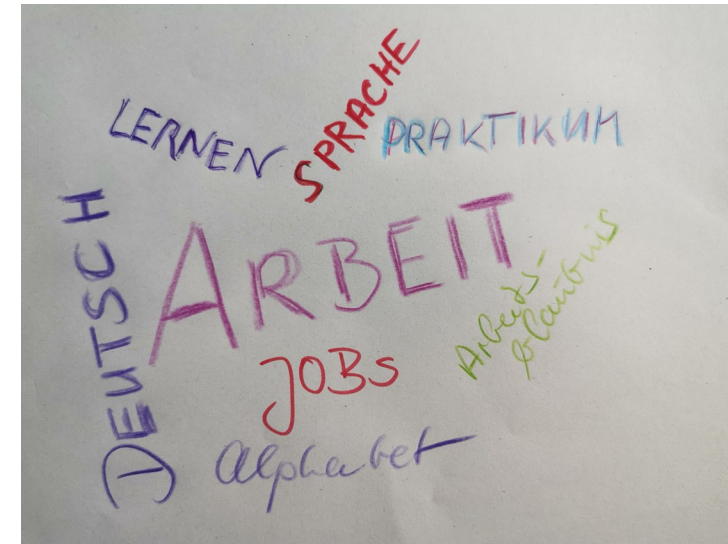 LERNEN
SPRACHE
PRAKTIKUM
DEUTSCH
ARBEIT
Arbeits-
JOBS
Alphabet